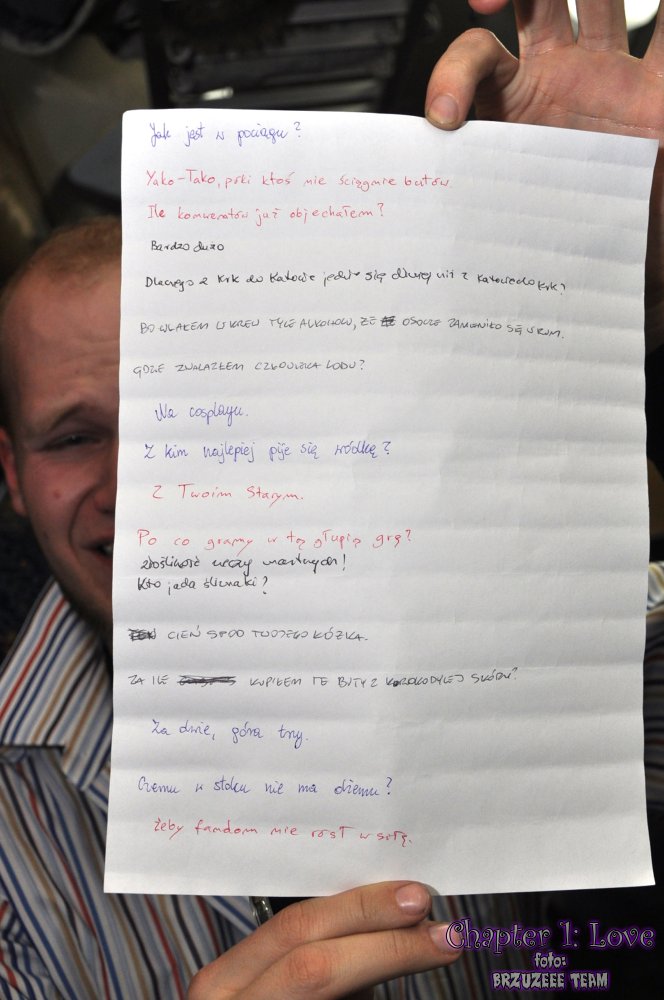 Jak jest w pociągu?
Yako-Tako, póki ktoś nie ściągnie butów.
Ile konwentów już objechałem?
Bardzo dużo
Dlaczego z Krk do Katowic jedzie się dłużej niż z Katowic do Krk?
BO MIAŁEM W KRWI TYLE ALKOHOLU, ŻE OSOCZE ZAMIENIŁO SIĘ W RUM.
GDZIE ZNALAZŁEM CZŁOWIEKA LODU?
Na cosplayu.
Z kim najlepiej pije się wódkę?
Z Twoim Starym.
Po co gramy w tą głupią grę?
złośliwość rzeczy martwych!
Kto jada ślimaki?
CIEŃ SPOD TWOJEGO ŁÓŻKA.
ZA ILE KUPIŁEM TE BUTY Z KROKODYLEJ SKÓRY?
Za dwie, góra trzy.
Czemu w słoiku nie ma dżemu?
Żeby fandom nie rósł w siłę.
Chapter 1: Love
foto:
BRZUZEEE TEAM